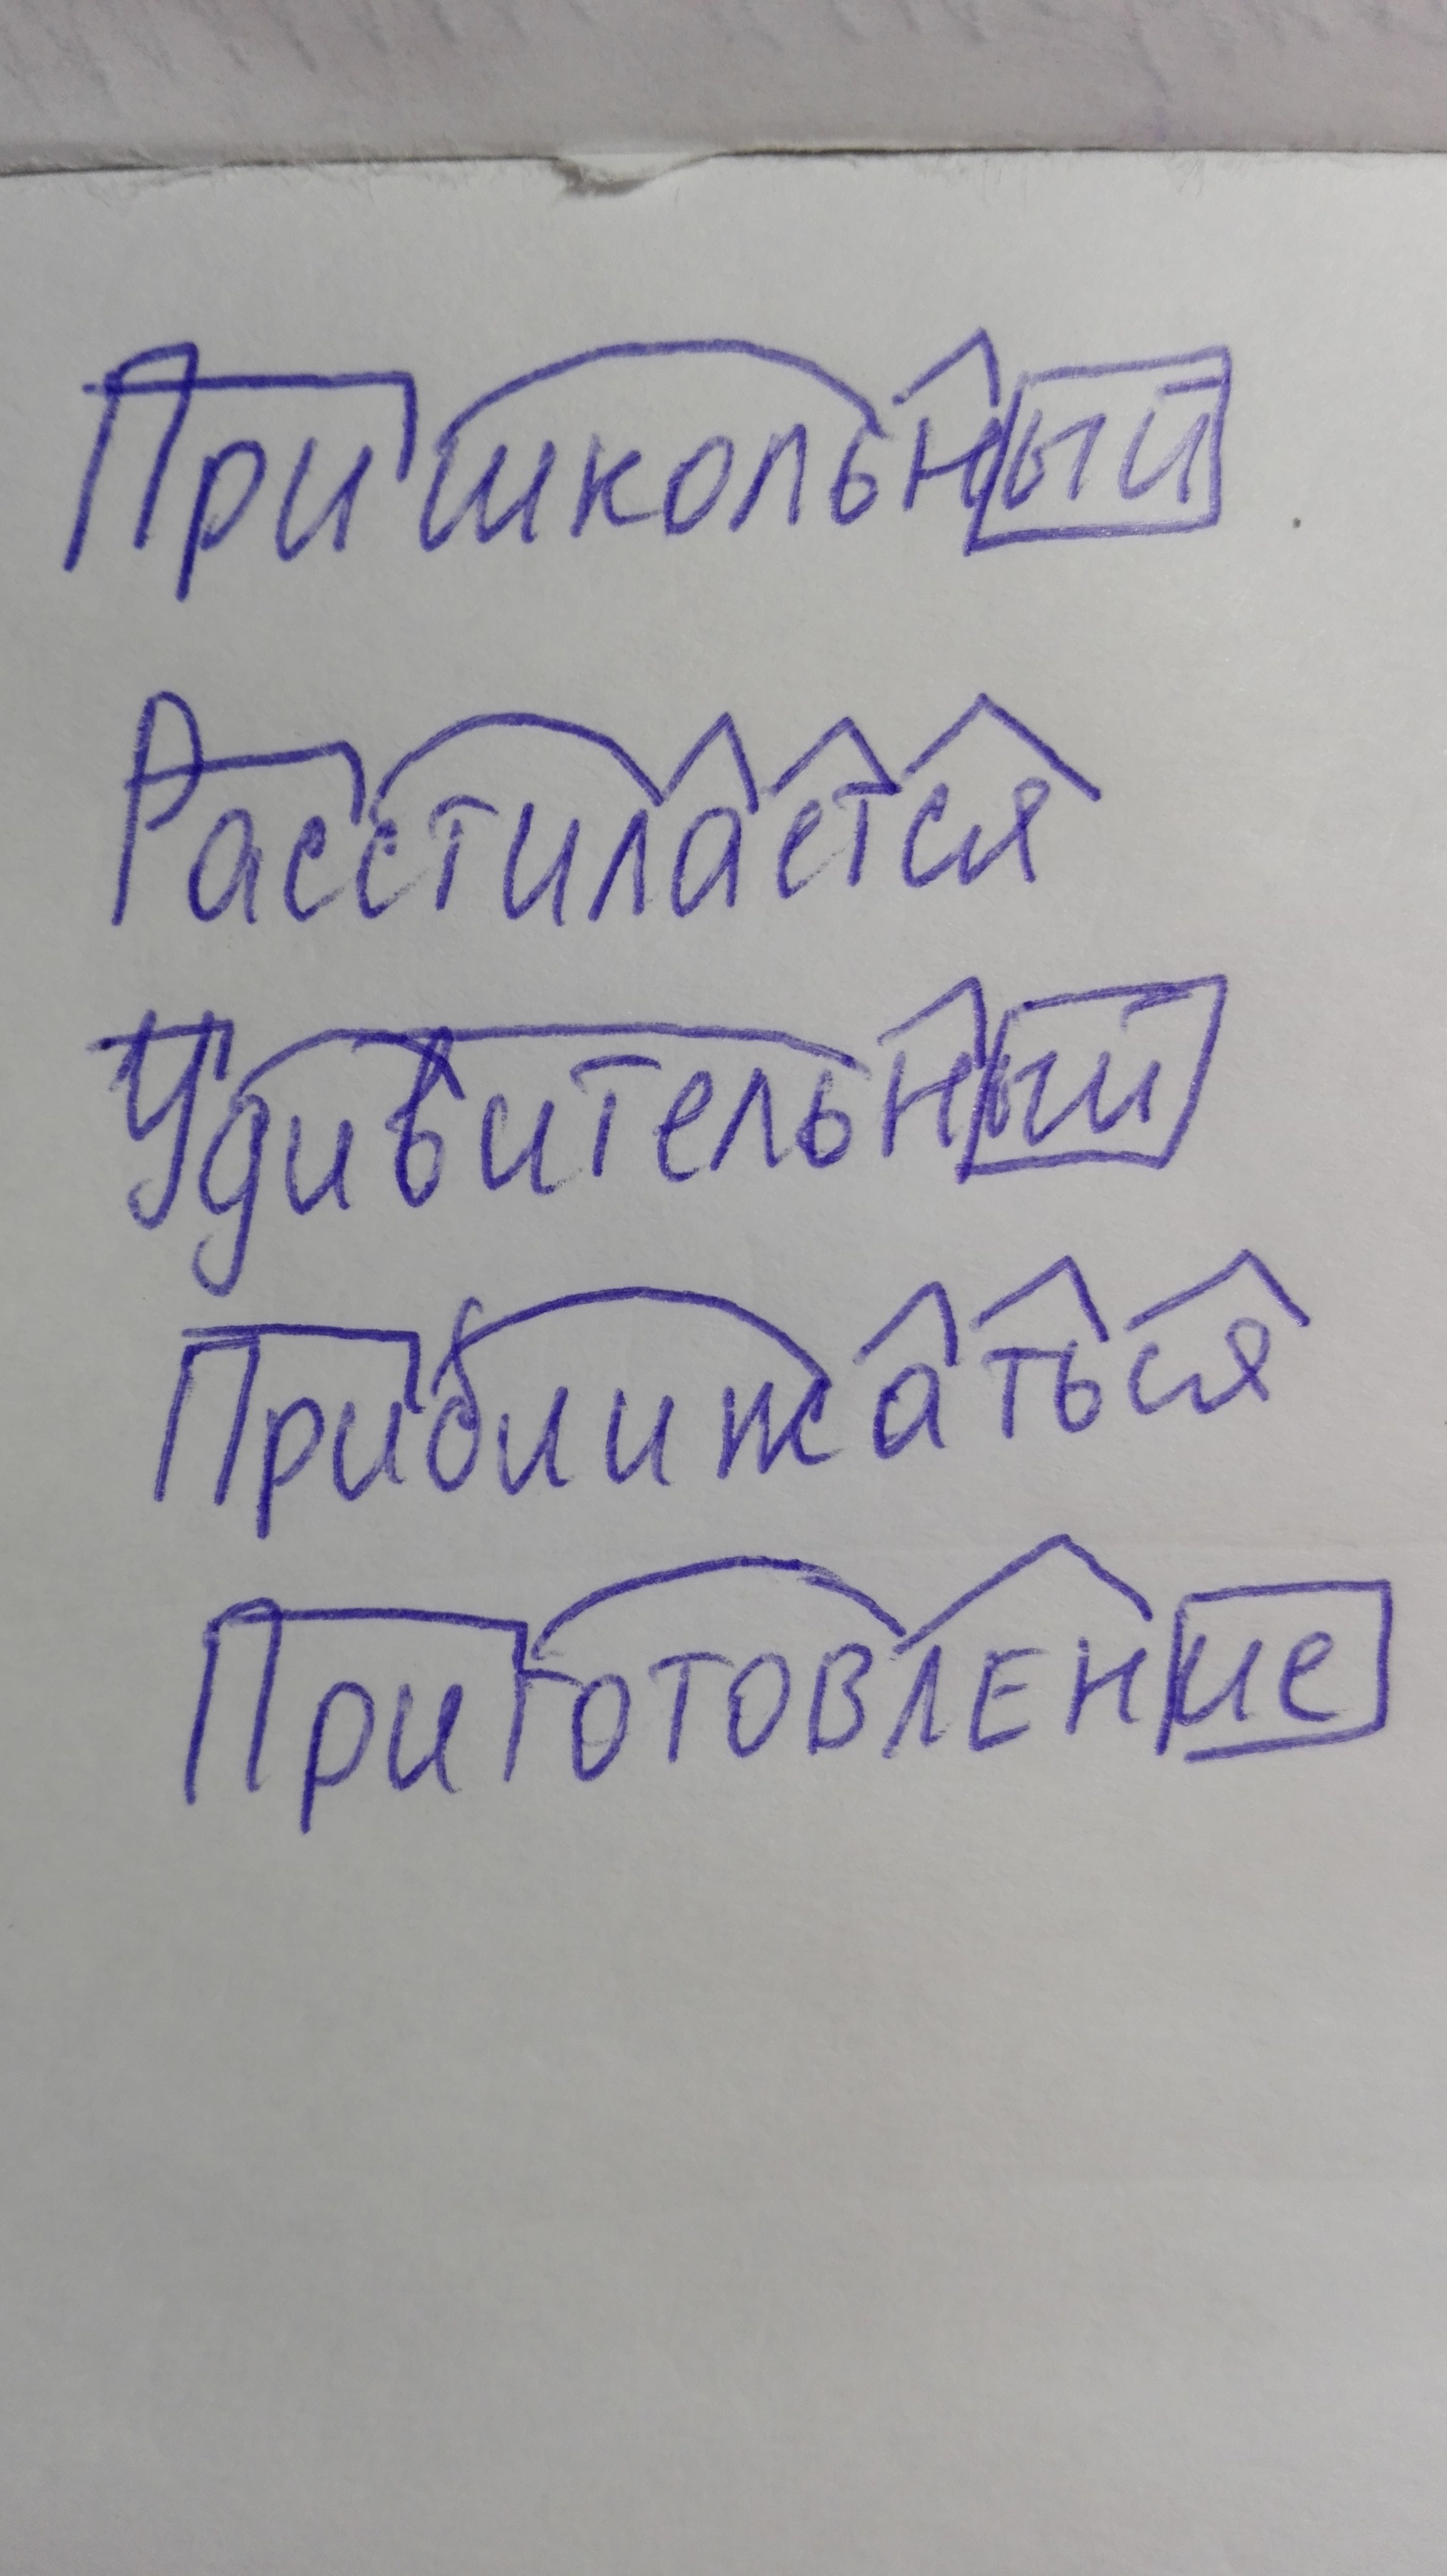 Пришкольный
Расстилается
Удивительный
Приближаться
Приготовление